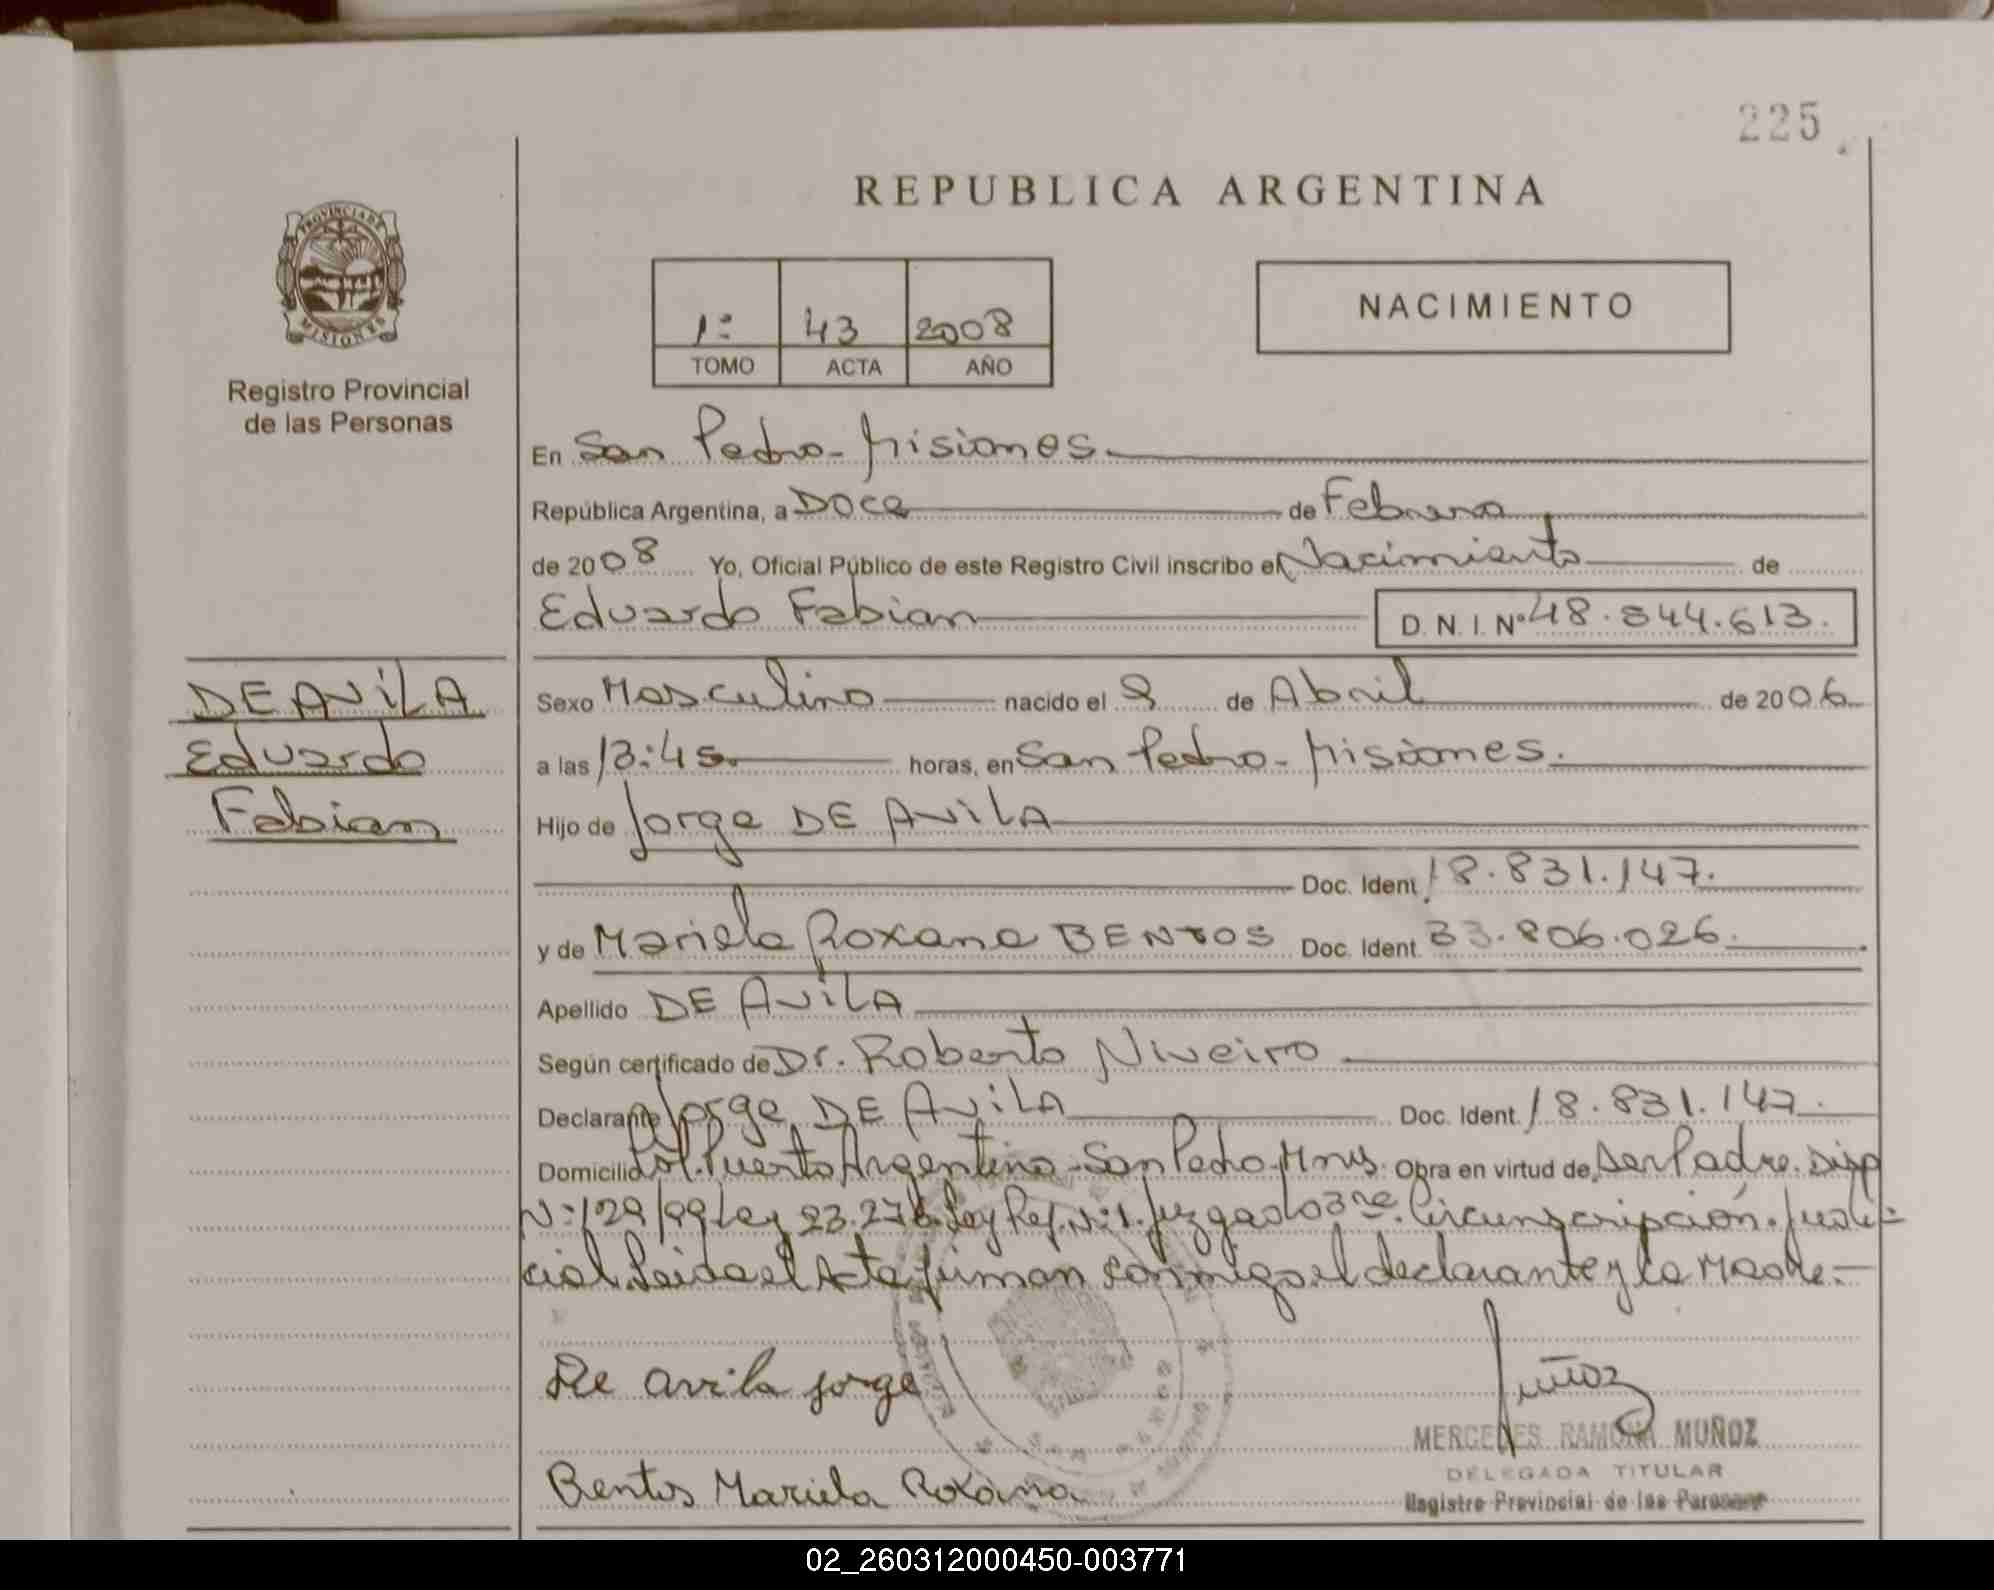 225
REPUBLICA ARGENTINA
PROVINCIA DE MISIONES
Registro Provincial
de las Personas
1º 43 2008
TOMO ACTA AÑO
NACIMIENTO
En San Pedro - Misiones.
República Argentina, a Doce de Febrero
de 2008 Yo, Oficial Público de este Registro Civil inscribo el Nacimiento de
Eduardo Fabian D.N.I. Nº 48.844.613.
DE AViLA
Eduardo
Fabian
Sexo Masculino nacido el 9 de Abril de 2006
a las 13:45. horas, en San Pedro - Misiones.
Hijo de Jorge DE AViLA
Doc. Ident 18.831.147.
y de Mariela Roxana BENTOS Doc. Ident. 33.806.026.
Apellido DE AViLA
Según certificado de Dr. Roberto Niveiro
Declarante Jorge DE AViLA Doc. Ident. 18.831.147.
Domicilio Col. Puerto Argentino - San Pedro - Mnes. Obra en virtud de Ser Padre. Disp
Nº 129/99 Ley 23.278. Ley Rej. Nº 1. Juzgado 3ra. Circunscripción. Judi-
cial. Leida el Acta firman conmigo el declarante y la Madre.-
De avila jorge
Muñoz
MERCEDES RAMONA MUÑOZ
DELEGADA TITULAR
Registro Provincial de las Personas
Bentos Mariela Roxana
02_260312000450-003771